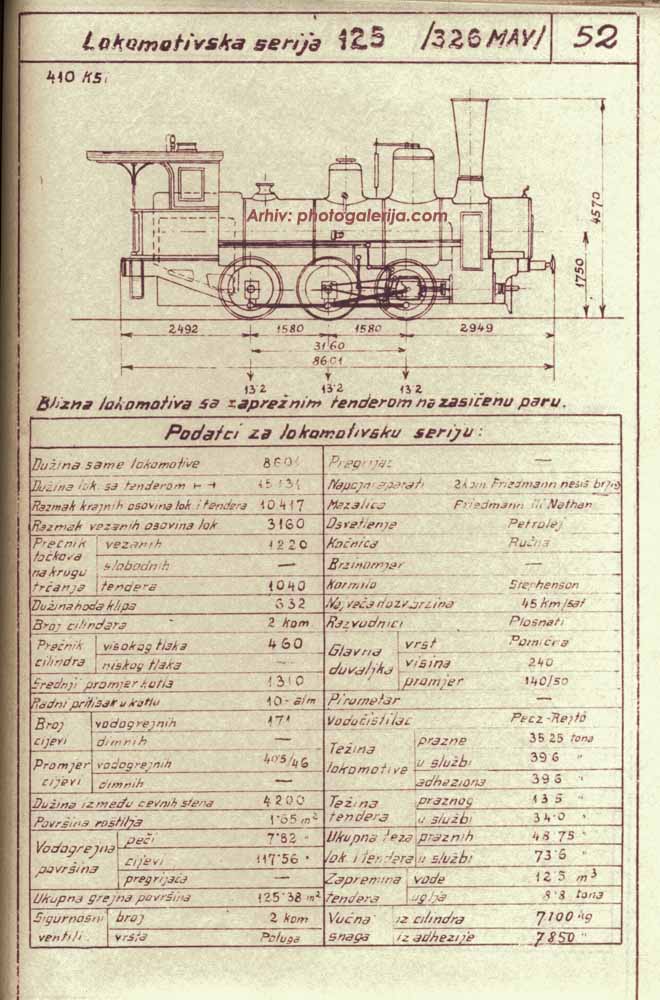 Lokomotivska serija 125 /326 MAV/ 52
410 KS.
Arhiv: photogalerija.com
4570
1750
2492 1580 1580 2949
3160
8601
13·2 13·2 13·2
Blizna lokomotiva sa zaprežnim tenderom na zasićenu paru.
Podatci za lokomotivsku seriju:
Dužina same lokomotive 8601
Dužina lok. sa tenderom
Razmak krajnih osovina lok. i tendera 10.417
Razmak vezanih osovina lok 3160
Prečnik točkova na krugu trčanja
vezanih 1220
slobodnih —
tendera 1040
Dužina hoda klipa 632
Broj cilindara 2 kom
Prečnik cilindra
visokog tlaka 460
niskog tlaka —
Srednji promjer kotla 1310
Radni pritisak u kotlu 10
Broj cijevi
vodogrejnih 171
dimnih —
Promjer cijevi
vodogrejnih 40·5/46
dimnih —
Dužina između cevnih stena 4200
Površina rostilja 1·65 m²
Vodogrejna površina
peći 7·82 "
cijevi 117·56 "
pregrijača —
Ukupna grejna površina 125·38 m²
Sigurnosni ventili
broj 2 kom
vrsta Poluga
Pregrijač —
Napojni aparati 2 kom. Friedmann
Mazalica Friedmann ili Nathan
Osvetlenje Petrolej
Kočnica Ručna
Brzinomjer —
Kormilo Stephenson
Najveća dozv. brzina 45 km/sat
Razvodnici Plosnati
Glavna duvaljka
vrst Pomična
visina 240
promjer 140/50
Pirometar —
Vodočistilac Pecz-Rejtö
Težina lokomotive
prazne 35·25 tona
u službi 39·6 "
adheziona 39·6 "
Težina tendera
praznog 13·5 "
u službi 34·0 "
Ukupna teza lok. i tendera
praznih 48·75 "
u službi 73·6 "
Zapremina tendera
vode 12·5 m³
uglja 8·8 tona
Vučna snaga
iz cilindra 7100 kg
iz adhezije 7850 "